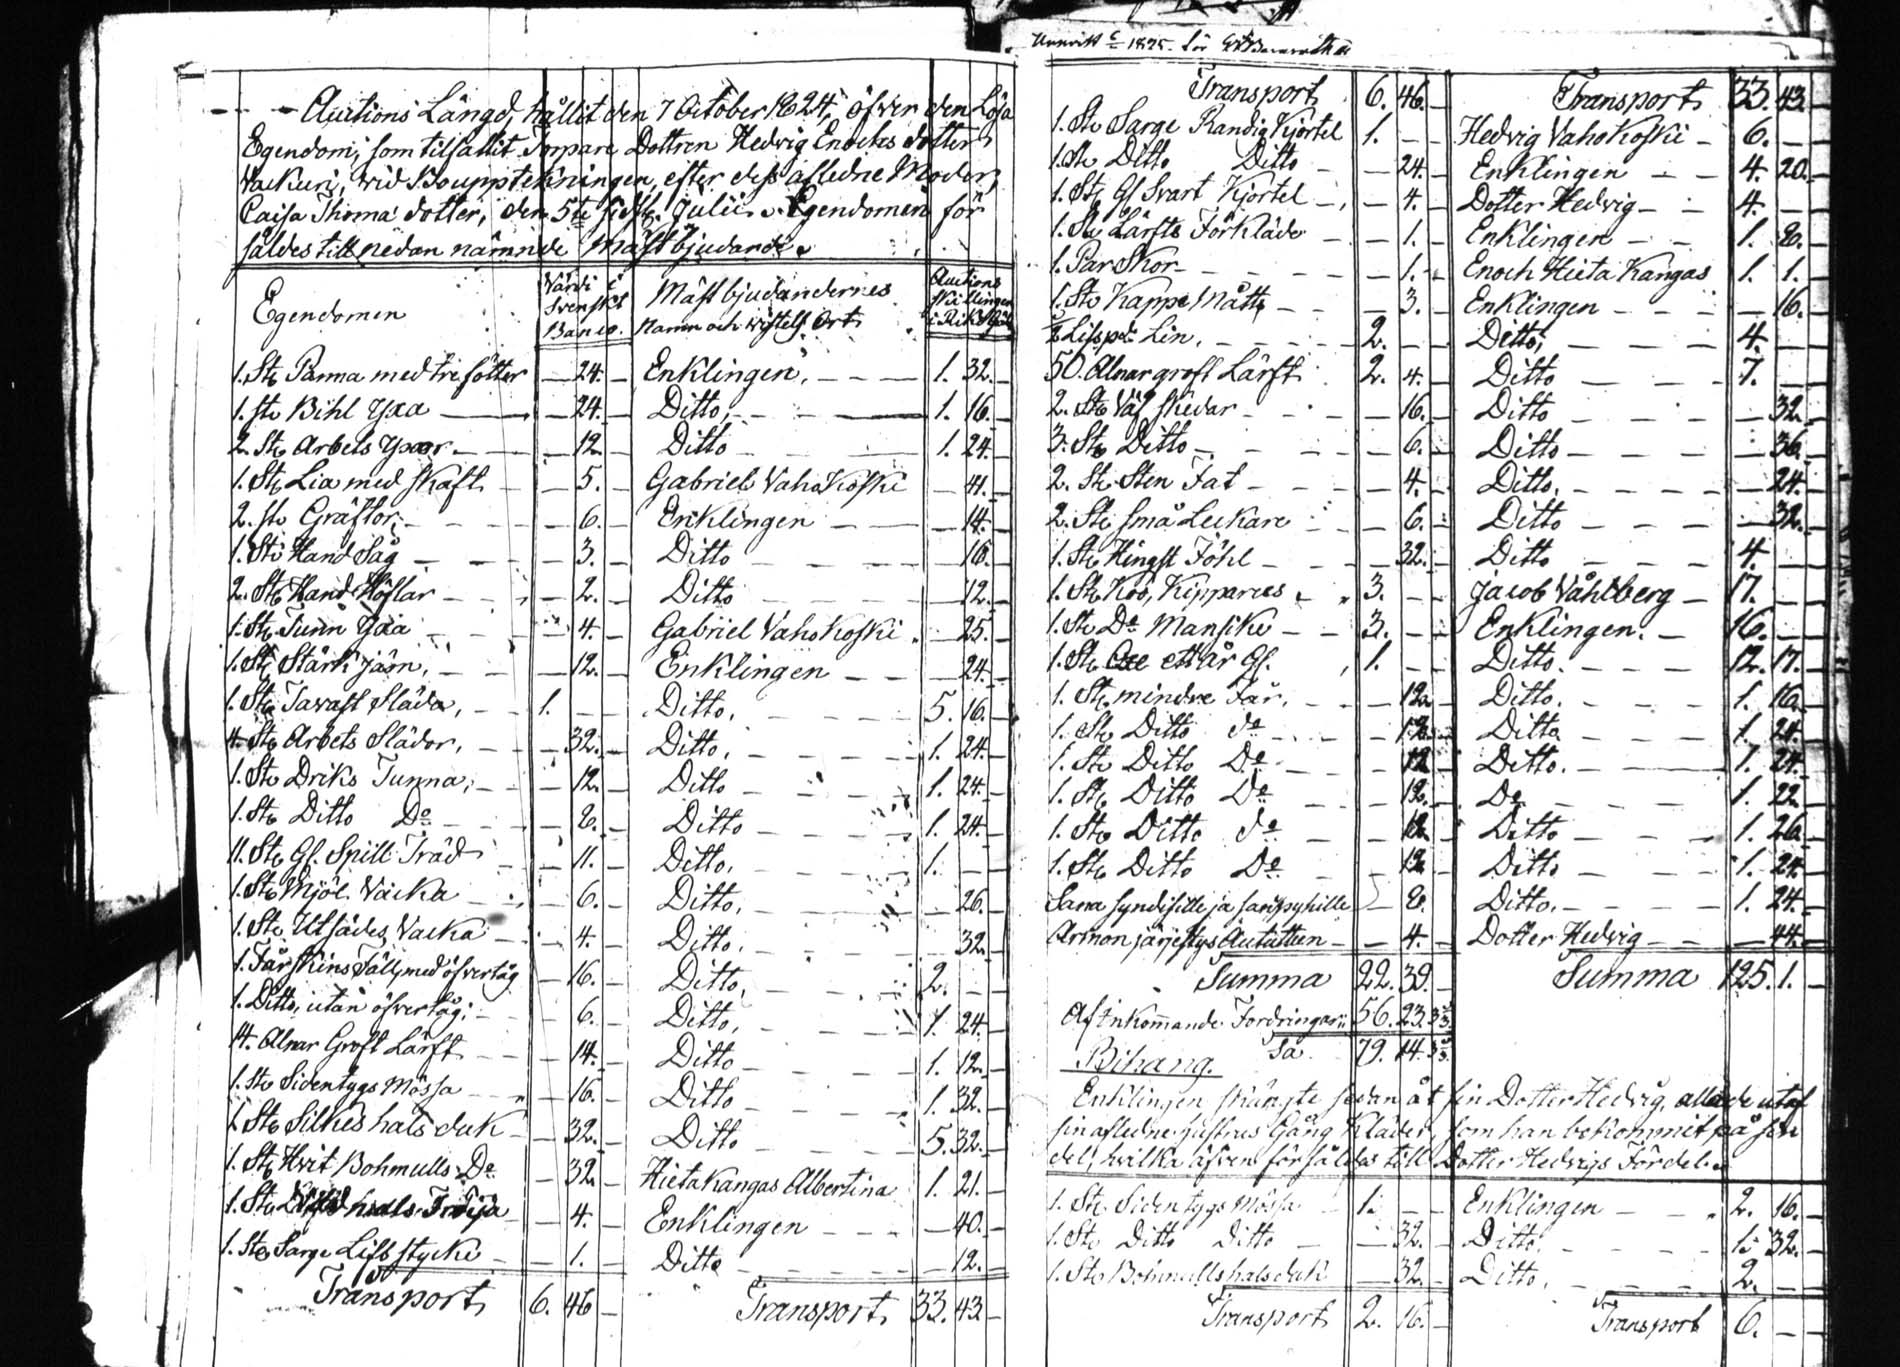 Auctions Längd, hållit den 7 October 1824, öfver den Lösa
Egendom, som tilfallit Torpare Dottren Hedvig Enochs dotter
Vackuri, vid Bouppteckningen, efter dess afledne Moder,
Caisa Thomæ dotter, den 5te sidstl. Julii. Egendomen för
såldes till nedan nämnde Mästbjudande.
Egendomen | Värdi i Svenskt Banco. | Mästbjudandernes Namn och vistelse Ort | Auctions Skillingen i Riksgäld
1. St. Panna med tre fötter — 24. — Enklingen, — 1. 32.
1. st. Bihl Yxa — 24. — Ditto, — 1. 16.
2. St. Arbets Yxor — 12. — Ditto — 1. 24.
1. St. Lia med skaft — 5. — Gabriel Vahokoski — 41.
2. st. Gräftor — 6. — Enklingen — 14.
1. St. Hand Såg — 3. — Ditto — 16.
2. St. Hand Höflar — 2. — Ditto — 12.
1. St. Tunn Yxa — 4. — Gabriel Vahokoski — 25.
1. St. Stärk järn, — 12. — Enklingen — 24.
1. St. Tavast släda, — 1. — Ditto, — 5. 16.
4. St. Arbets Slädor, — 32. — Ditto, — 1. 24.
1. St. Driks Tunna, — 12. — Ditto — 1. 24.
1. St. Ditto Do — 8. — Ditto — 1. 24.
11. St. Gl. Spill Träd — 11. — Ditto, — 1.
1. St. Mjöl Vacka — 6. — Ditto, — 26.
1. St. Utsädes Vacka — 4. — Ditto, — 32.
1. Fårskins Fäll, med öfvertåg — 16. — Ditto, — 2.
1. Ditto, utan öfvertåg; — 6. — Ditto, — 1. 24.
14. Alnar Groft Lärft — 14. — Ditto — 1. 12.
1. St. Sidentygs Mössa — 16. — Ditto — 1. 32.
1. St. Silkes hals duk — 32. — Ditto — 5. 32.
1. St. Hvit Bohmulls Do — 32. — Hietakangas Albertina — 1. 21.
1. St. Tröija — 4. — Enklingen — 40.
1. St. Sarge Lifstycke — 1. — Ditto — 12.
Transport 6. 46 — Transport 33. 43
1825. för
Transport 6. 46. — Transport 33. 43.
1. St. Sarge Randig Kjortel 1. — Hedvig Vahokoski — 6.
1. St. Ditto Ditto — 24. — Enklingen — 4. 20.
1. St. Gl Svart Kjortel — 4. — Dotter Hedvig — 4.
1. St. Lärfts Förkläde — 1. — Enklingen — 1. 8.
1. Par Skor — 1. — Enoch Hieta Kangas 1. 1.
1. St. Kappe Mått — 3. — Enklingen — 16.
½ Lispd Lin, — 2. — Ditto, — 4.
50. Alnar groft Lärft 2. 4. — Ditto — 7.
2. St. Väf skedar — 16. — Ditto — 32.
3. St. Ditto — 6. — Ditto — 36.
2. St. Sten Fat — 4. — Ditto. — 24.
2. St. små Leckare — 6. — Ditto — 32.
1. St. Hingst Föhl — 32. — Ditto — 4.
1. St. Koo, Kipparies — 3. — Jacob Våhlberg — 17.
1. St. Do Mansike — 3. — Enklingen. — 16.
1. St. ett år Gl. 1. — Ditto. — 12. 17.
1. St. mindre Får, — 12. — Ditto. — 1. 16.
1. St. Ditto do — 12. — Ditto — 1. 24.
1. St. Ditto Do — 12 — Ditto. — 1. 24.
1. St. Ditto Do — 12. — Do — 1. 22
1. St. Ditto do — 12. — Ditto — 1. 26.
1. St. Ditto Do — 12 — Ditto — 1. 24.
Sana syndisille ja — 8. — Ditto. — 1. 24.
Armon järjestys Autuuteen — 4. — Dotter Hedvig — 44.
Summa 22. 39. — Summa 125. 1.
Af inkommande Fordringar 56. 23.
Bihang. Sa 79. 14.
Enklingen skänkte sedan åt sin Dotter Hedvig, allade utaf
sin afledne hustrus Gång Kläder, som han bekommit på sin
del, hvilka äfven försåldes till Dotter Hedvigs Fördel.
1. St. Sidentygs Mössa — 1. — Enklingen — 2. 16.
1. St. Ditto Ditto — 32. — Ditto. — 1. 32.
1. St. Bohmulls halsduk — 32. — Ditto. — 2.
Transport 2. 16. — Transport 6.